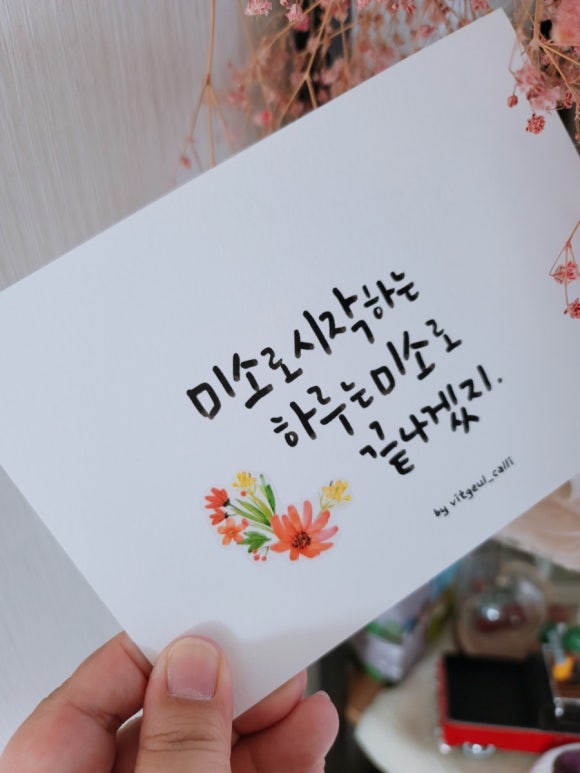 미소로 시작하는
하루는 미소로
끝나겠지.
by vitgeul_calli